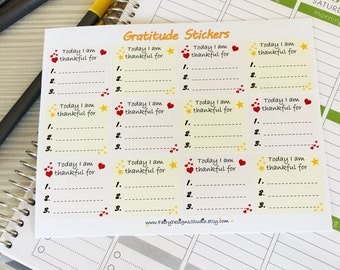 Gratitude Stickers
Today I am Today I am Today I am Today I am
thankful for thankful for thankful for thankful for
1. 1. 1. 1.
2. 2. 2. 2.
3. 3. 3. 3.
Today I am Today I am Today I am Today I am
thankful for thankful for thankful for thankful for
1. 1. 1. 1.
2. 2. 2. 2.
3. 3. 3. 3.
Today I am Today I am Today I am Today I am
thankful for thankful for thankful for thankful for
1. 1. 1. 1.
2. 2. 2. 2.
3. 3. 3. 3.